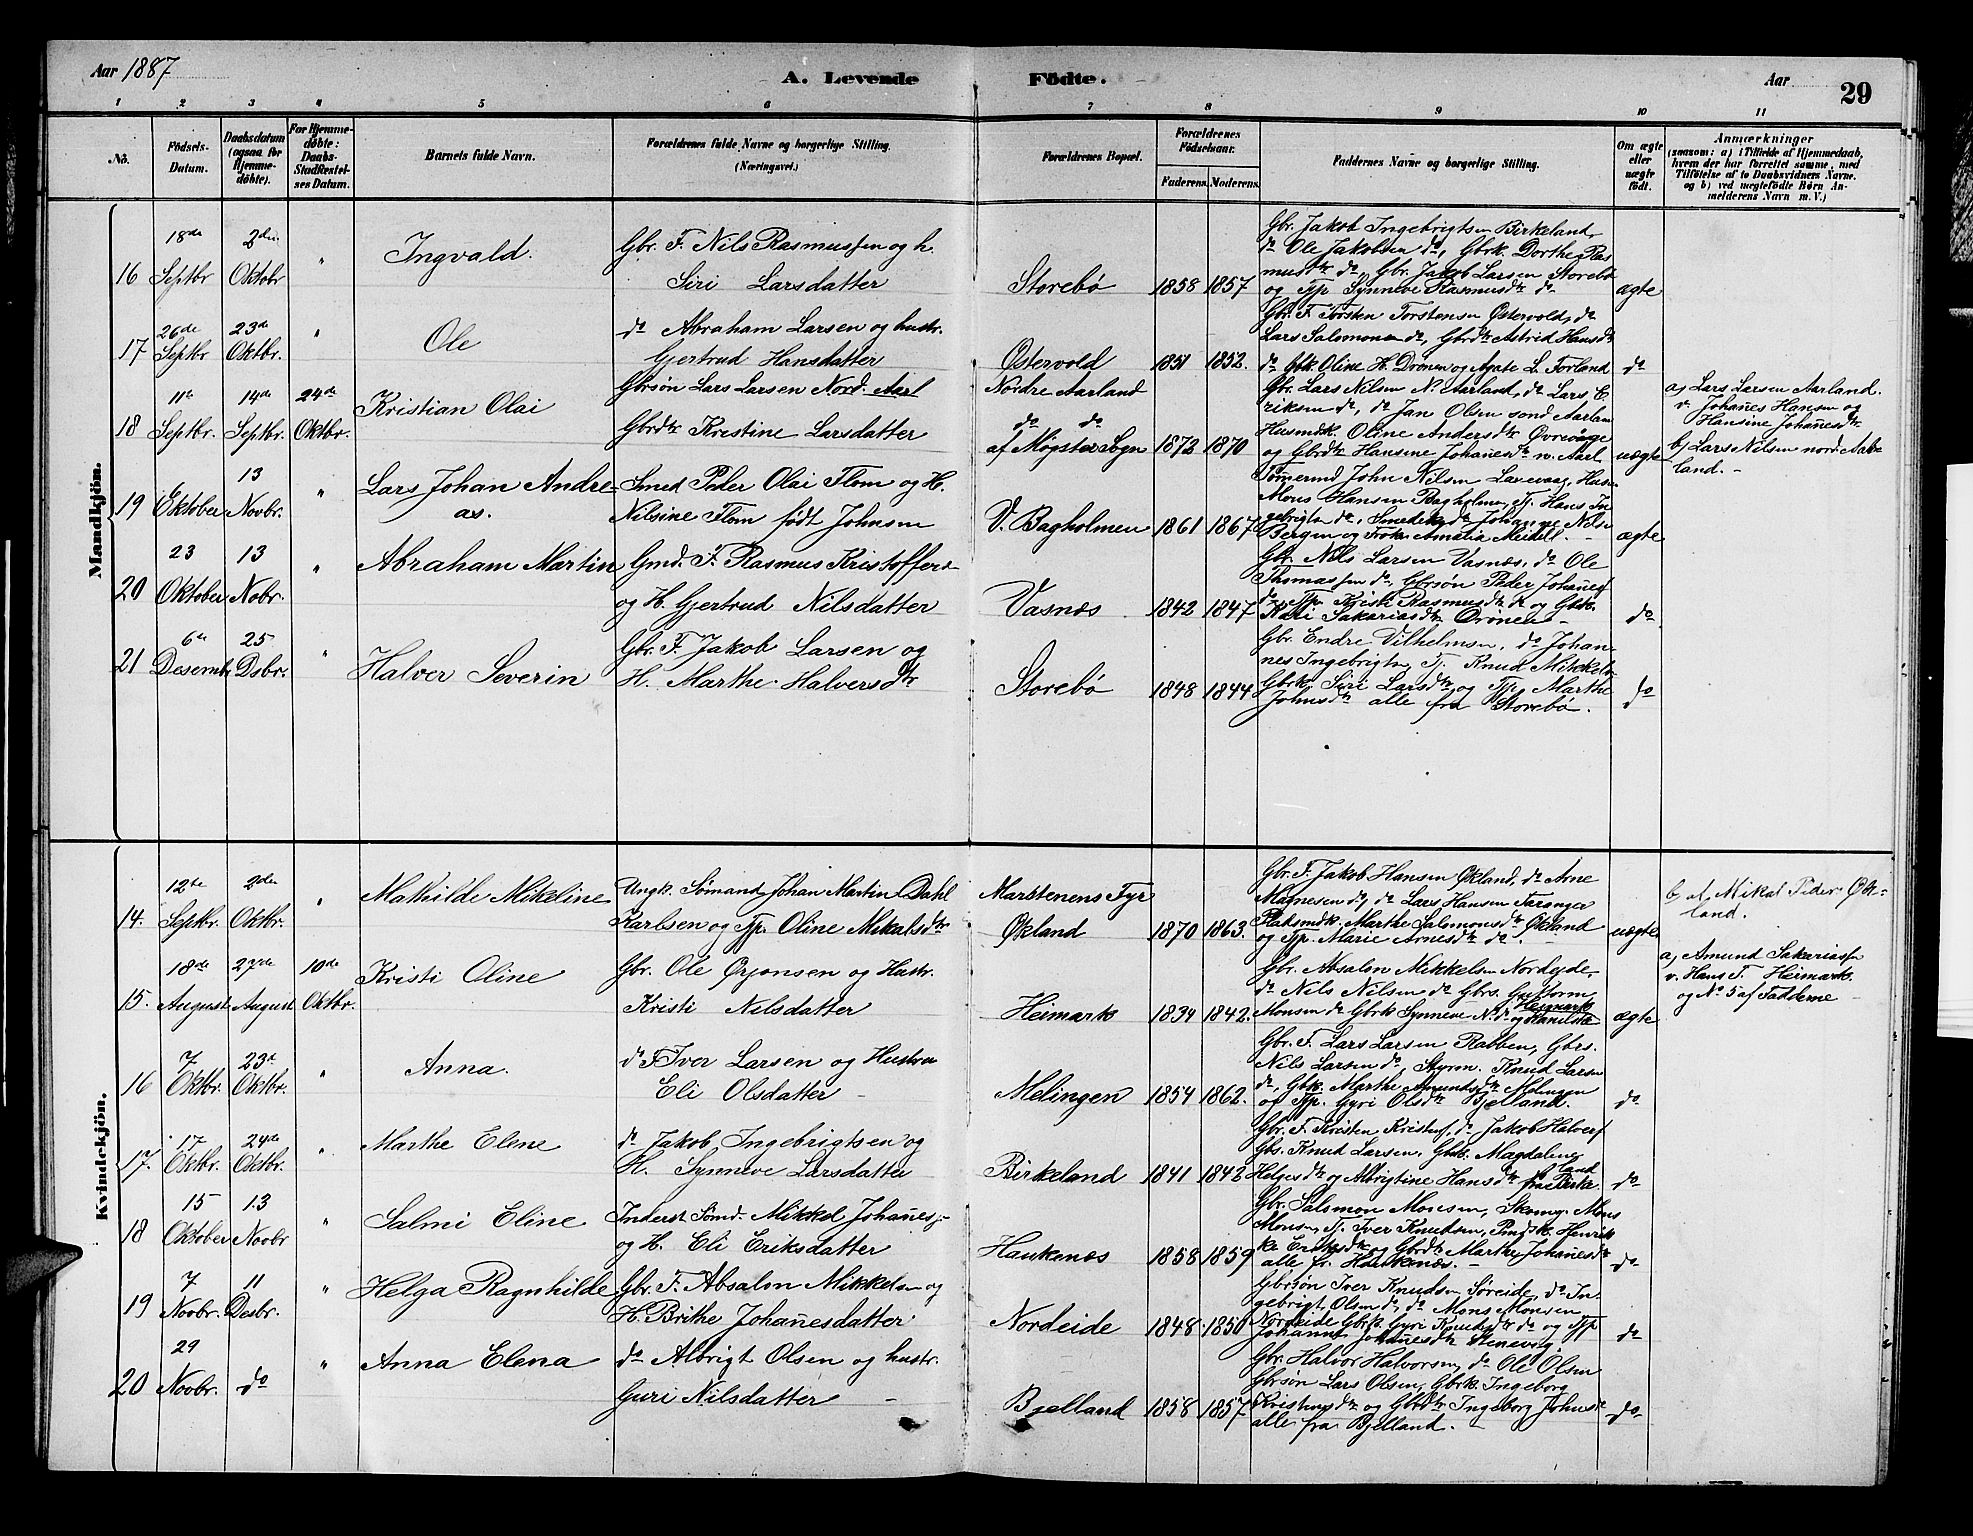 Aar 1887
A. Levende Födte.
Aar
29
1 2 3 4 5 6 7 8 9 10 11
No.
Födsels-Datum.
Daabsdatum (ogsaa for Hjemme-döbte).
For Hjemme-döbte: Daabs-Stadfæstel-ses Datum.
Barnets fulde Navn.
Forældrenes fulde Navne og borgerlige Stilling. (Næringsvei.)
Forældrenes Bopæl.
Forældrenes Födselsaar.
Faderens. Moderens.
Faddernes Navne og borgerlige Stilling.
Om ægte eller uægte födt.
Anmærkninger
(saasom: a) i Tilfælde af Hjemmedaab, hvem der har forrettet samme, med Tilföielse af to Daabsvidners Navne. og b) ved uægtefödte Börn Anmelderens Navn m. V.)
Mandkjön.
16 18de Septbr 2den Oktobr " Ingvald.
Gbr. F. Nils Rasmussen og h.
Siri Larsdatter
Storebø 1858 1857
Gbr. Jakob Ingebrigtsen Birkeland,
do Ole Jakobsen do, Gbrk. Dorthe Ras
musdtr do, Gbr. Jakob Larsen Storebø
og Tjp. Synneve Rasmusdtr do
ægte
17 26de Septbr 23de Oktbr. " Ole
do Abraham Larsen og hustr.
Gjertrud Hansdatter
Østervold 1851 1852.
Gbr. F. Torsten Torstensen Østervold, do
Lars Salomonsen do, Gbrdtr Astrid Hansdtr
do Gbk. Oline H. Drønen og Agate L. Forland
do
18 11te Septbr. 14de Septbr. 24de Oktobr. Kristian Olai
Gbrsøn Lars Larsen Nord. Aarl
Gbrdtr Kristine Larsdatter
Nordre Aarland
do do
af Møgster Sogn 1872 1870
Gbr. Lars Nilsen N. Aarland, do Lars E
riksen do, do Jan Olsen sond Aarlan
Husmdk. Oline Andersdtr Øvrevaage
og Gbrdtr Hansine Johanesdtr n. Aarl
uægte
a) Lars Larsen Aarland.
v. Johanes Hansen og
Hansine Johanesdtr
b) Lars Nilsen nord. Aar-
land. -
19 6 Oktober 13 Novbr. " Lars Johan Andre-
as.
Smed Peder Olai Flom og H.
Nilsine Flom født Johnsen
V. Bagholmen 1861 1867
Tømermd John Nilsen Lavevaag, Hus
Mons Hansen Bagholmen, Tj. Hans In
gebrigtsen do, Smedek. do Johanne Nilsen
Bergen og Frøkn Amalia Meidell. -
ægte
20 23 Oktober 13 Nobr. " Abraham Martin
Gmd. F. Rasmus Kristoffers-
og H. Gjertrud Nilsdatter
Vasnæs 1842 1847
Gbr. Nils Larsen Vasnæs, do Ole
Thomassen do, Gbrsøn Peder Johanes
do, Tjp. Kristi Rasmusdtr do og Gbk.
Kari Sakariasdtr Drønen -
do
21 6te Desembr 25 Dsbr. " Halver Severin
Gbr. F. Jakob Larsen og
H. Marthe Halversdtr
Storebø 1848 1844
Gbr. Endre Vilhelmsen, do Johan
nes Ingebrigtsn, Tj. Knud Mikkels
Gbrk. Siri Larsdtr og Tjp. Marthe
Johnsdtr alle fra Storebø.
do
Kvindekjön.
14. 12te Septbr. 2den Oktbr. " Mathilde Mikeline
Ungk. Sømand, Johan Martin Dahl
Karlsen og Tjp. Oline Mikalsdtr
Marstenens Fyr
Økland 1870 1863.
Gbr. F. Jakob Hansen Økland, do Arne
Magnesen do, do Lars Hansen Taranger
Pladsmdk. Marthe Salomonsdtr Økland
og Tjp. Marie Arnesdtr do. -
uægte
b, af Mikal Peder Øk-
land.
15. 18de August 27de August 10de Oktobr. Kristi Oline
Gbr. Ole Ørjansen og Hustr.
Kristi Nilsdatter
Heimark 1834 1842.
Gbr. Absalon Mikkelsen Nordeide,
do Nils Nilsen do Gbrs. Guttorm
Monsen do Gbrk Synneve N. do og Heimark
ægte
a, Amund Sakariassen
v. Hans T. Heimark
og No 5 af Fadderne
16 7 Oktbr. 23d Oktbr. " Anna.
do F Iver Larsen og Hustru
Eli Olsdatter -
Melingen 1854 1862.
Gbr. F. Lars Larsen Rabben, Gbrs.
Nils Larsen do, Styrm. Knud Larsen
do, Gbk. Marthe Amundsdtr Melingen
og Tjp. Gyri Olsdtr Bjelland.
do
17. 17 Oktbr. 24de Oktbr. " Marthe Elene
do Jakob Ingebrigtsen og
H. Synneve Larsdatter
Birkeland 1841 1842
Gbr. F. Kristen Kristens, do Jakob Halvers
Gbs. Knud Larsen, Gbk. Magdalene
Helgesdtr og Albrigtine Hansdtr fra Birkeland
do
18 15 Oktober 13 Novbr " Salmi Eline
Inderst Sømd. Mikkel Johanes-
og H. Eli Eriksdatter
Haukenæs 1858 1859
Gbr. Salomon Mosesen, Skomg. Mons
Monsen, Tj. Iver Knudsen, Pmdsk. Henrik
ke Eriksdtr og Gbrdtr Marthe Johanesdtr
alle fr. Haukenæs. -
do
19 7 Novbr. 11 Desbr. " Helga Ragnhilde
Gbr. F. Absalon Mikkelsen og
H. Brithe Johanesdatter
Nordeide 1848 1850
Gbrsøn Iver Knudsen Søreide, do In-
gebrigt Olsen do, do Mons Monsen
Nordeide Gbrk. Gyri Knudsdtr do og Tjp
Johanne Johanesdtr Stenevig.
do
20 29 Novbr. do " Anna Elena
do Albrigt Olsen og hustr.
Guri Nilsdatter -
Bjelland 1858 1857
Gbr. Halvor Halvorsen, do Ole Olsen
Gbrsøn Lars Olsen, Gbrk. Ingeborg
Kristensdtr og Gbrdtr Ingeborg Johnsdtr
alle fra Bjelland. -
do